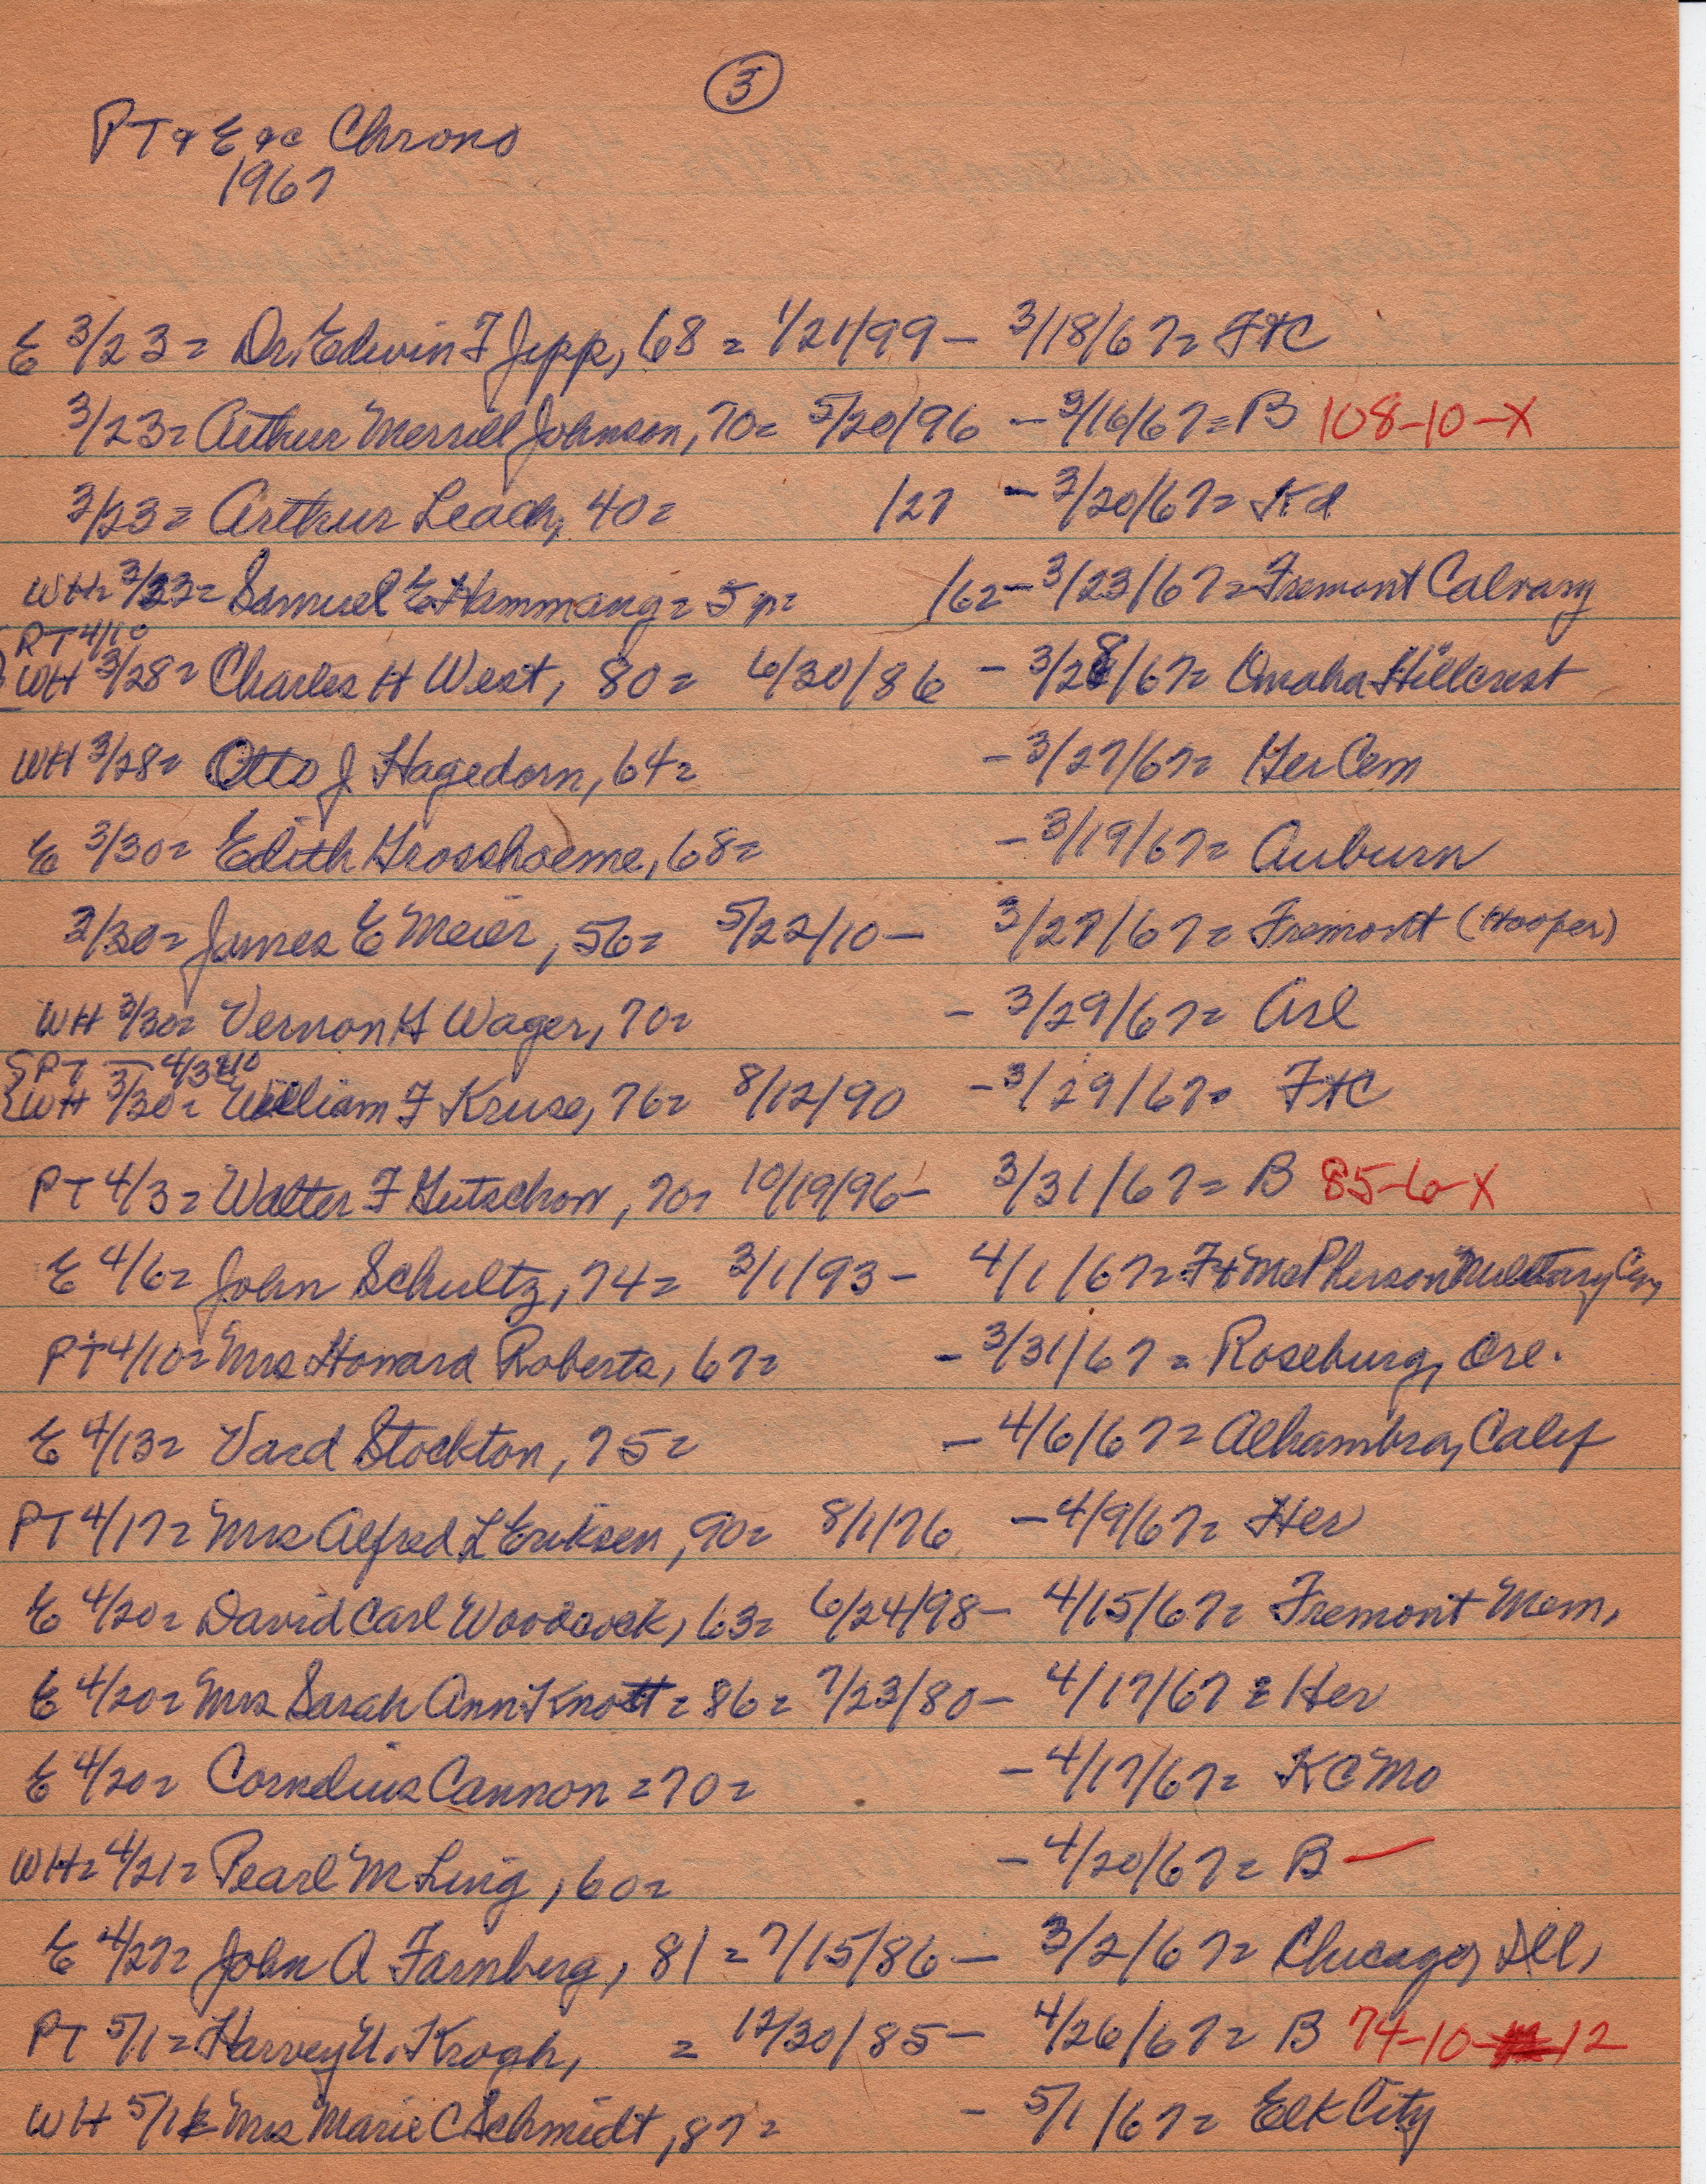 3
PT & E &c Chrono
1967
E 3/23 = Dr. Edwin F Jipp, 68 = 1/21/99 - 3/18/67 = FtC
3/23 = Arthur Merrill Johnson, 70 = 5/20/96 - 3/16/67 = B 108-10-X
3/23 = Arthur Leach, 40 = /27 - 3/20/67 = Kd
WH = 3/23 = Samuel E Hammang = 5 yr = /62 - 3/23/67 = Fremont Calvary
PT 4/10
WH 3/28 = Charles H West, 80 = 6/30/86 - 3/28/67 = Omaha Hillcrest
WH 3/28 = Otto J Hagedorn, 64 = - 3/27/67 = Her Cem
E 3/30 = Edith Grosshoeme, 68 = - 3/19/67 = Auburn
3/30 = James E Meier, 56 = 5/22/10 - 3/27/67 = Fremont (Hooper)
WH 3/30 = Vernon H Wager, 70 = - 3/29/67 = Arl
PT - 4/3
WH 3/30 = William F Kruse, 76 = 8/12/90 - 3/29/67 = FtC
PT 4/3 = Walter F Gutschow, 70 = 10/19/96 - 3/31/67 = B 85-6-X
E 4/6 = John Schultz, 74 = 3/1/93 - 4/1/67 = Ft McPherson Military Cem
PT 4/10 = Mrs Howard Roberts, 67 = - 3/31/67 = Roseburg, Ore.
E 4/13 = Vard Stockton, 75 = - 4/6/67 = Alhambra, Calif
PT 4/17 = Mrs Alfred L Eriksen, 90 = 8/1/76 - 4/9/67 = Her
E 4/20 = David Carl Woodcock, 63 = 6/24/98 - 4/15/67 = Fremont Mem,
E 4/20 = Mrs Sarah Ann Knott = 86 = 7/23/80 - 4/17/67 = Her
E 4/20 = Cornelius Cannon = 70 = - 4/17/67 = KC Mo
WH = 4/21 = Pearl M Ling, 60 = - 4/20/67 = B -
E 4/27 = John A Farnberg, 81 = 7/15/86 - 3/2/67 = Chicago, Ill,
PT 5/1 = Harvey U. Krogh, = 12/30/85 - 4/26/67 = B 74-10-12
WH 5/1 Mrs Marie C Schmidt, 87 = - 5/1/67 = Elk City